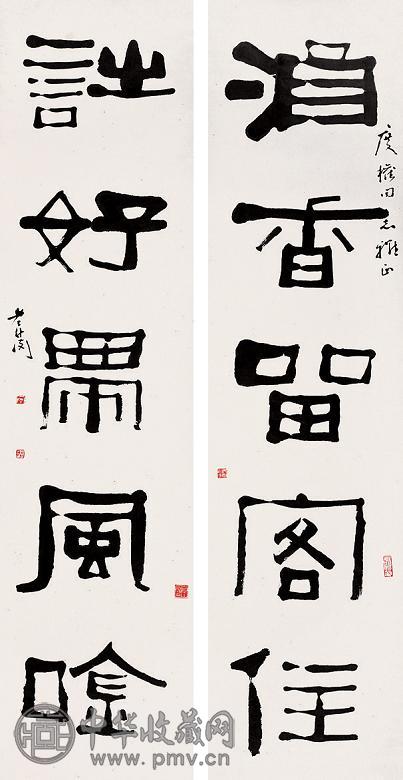 酒香留客住
度權同志雅正
詩好帶風吟
中华收藏网
www.pmv.cn